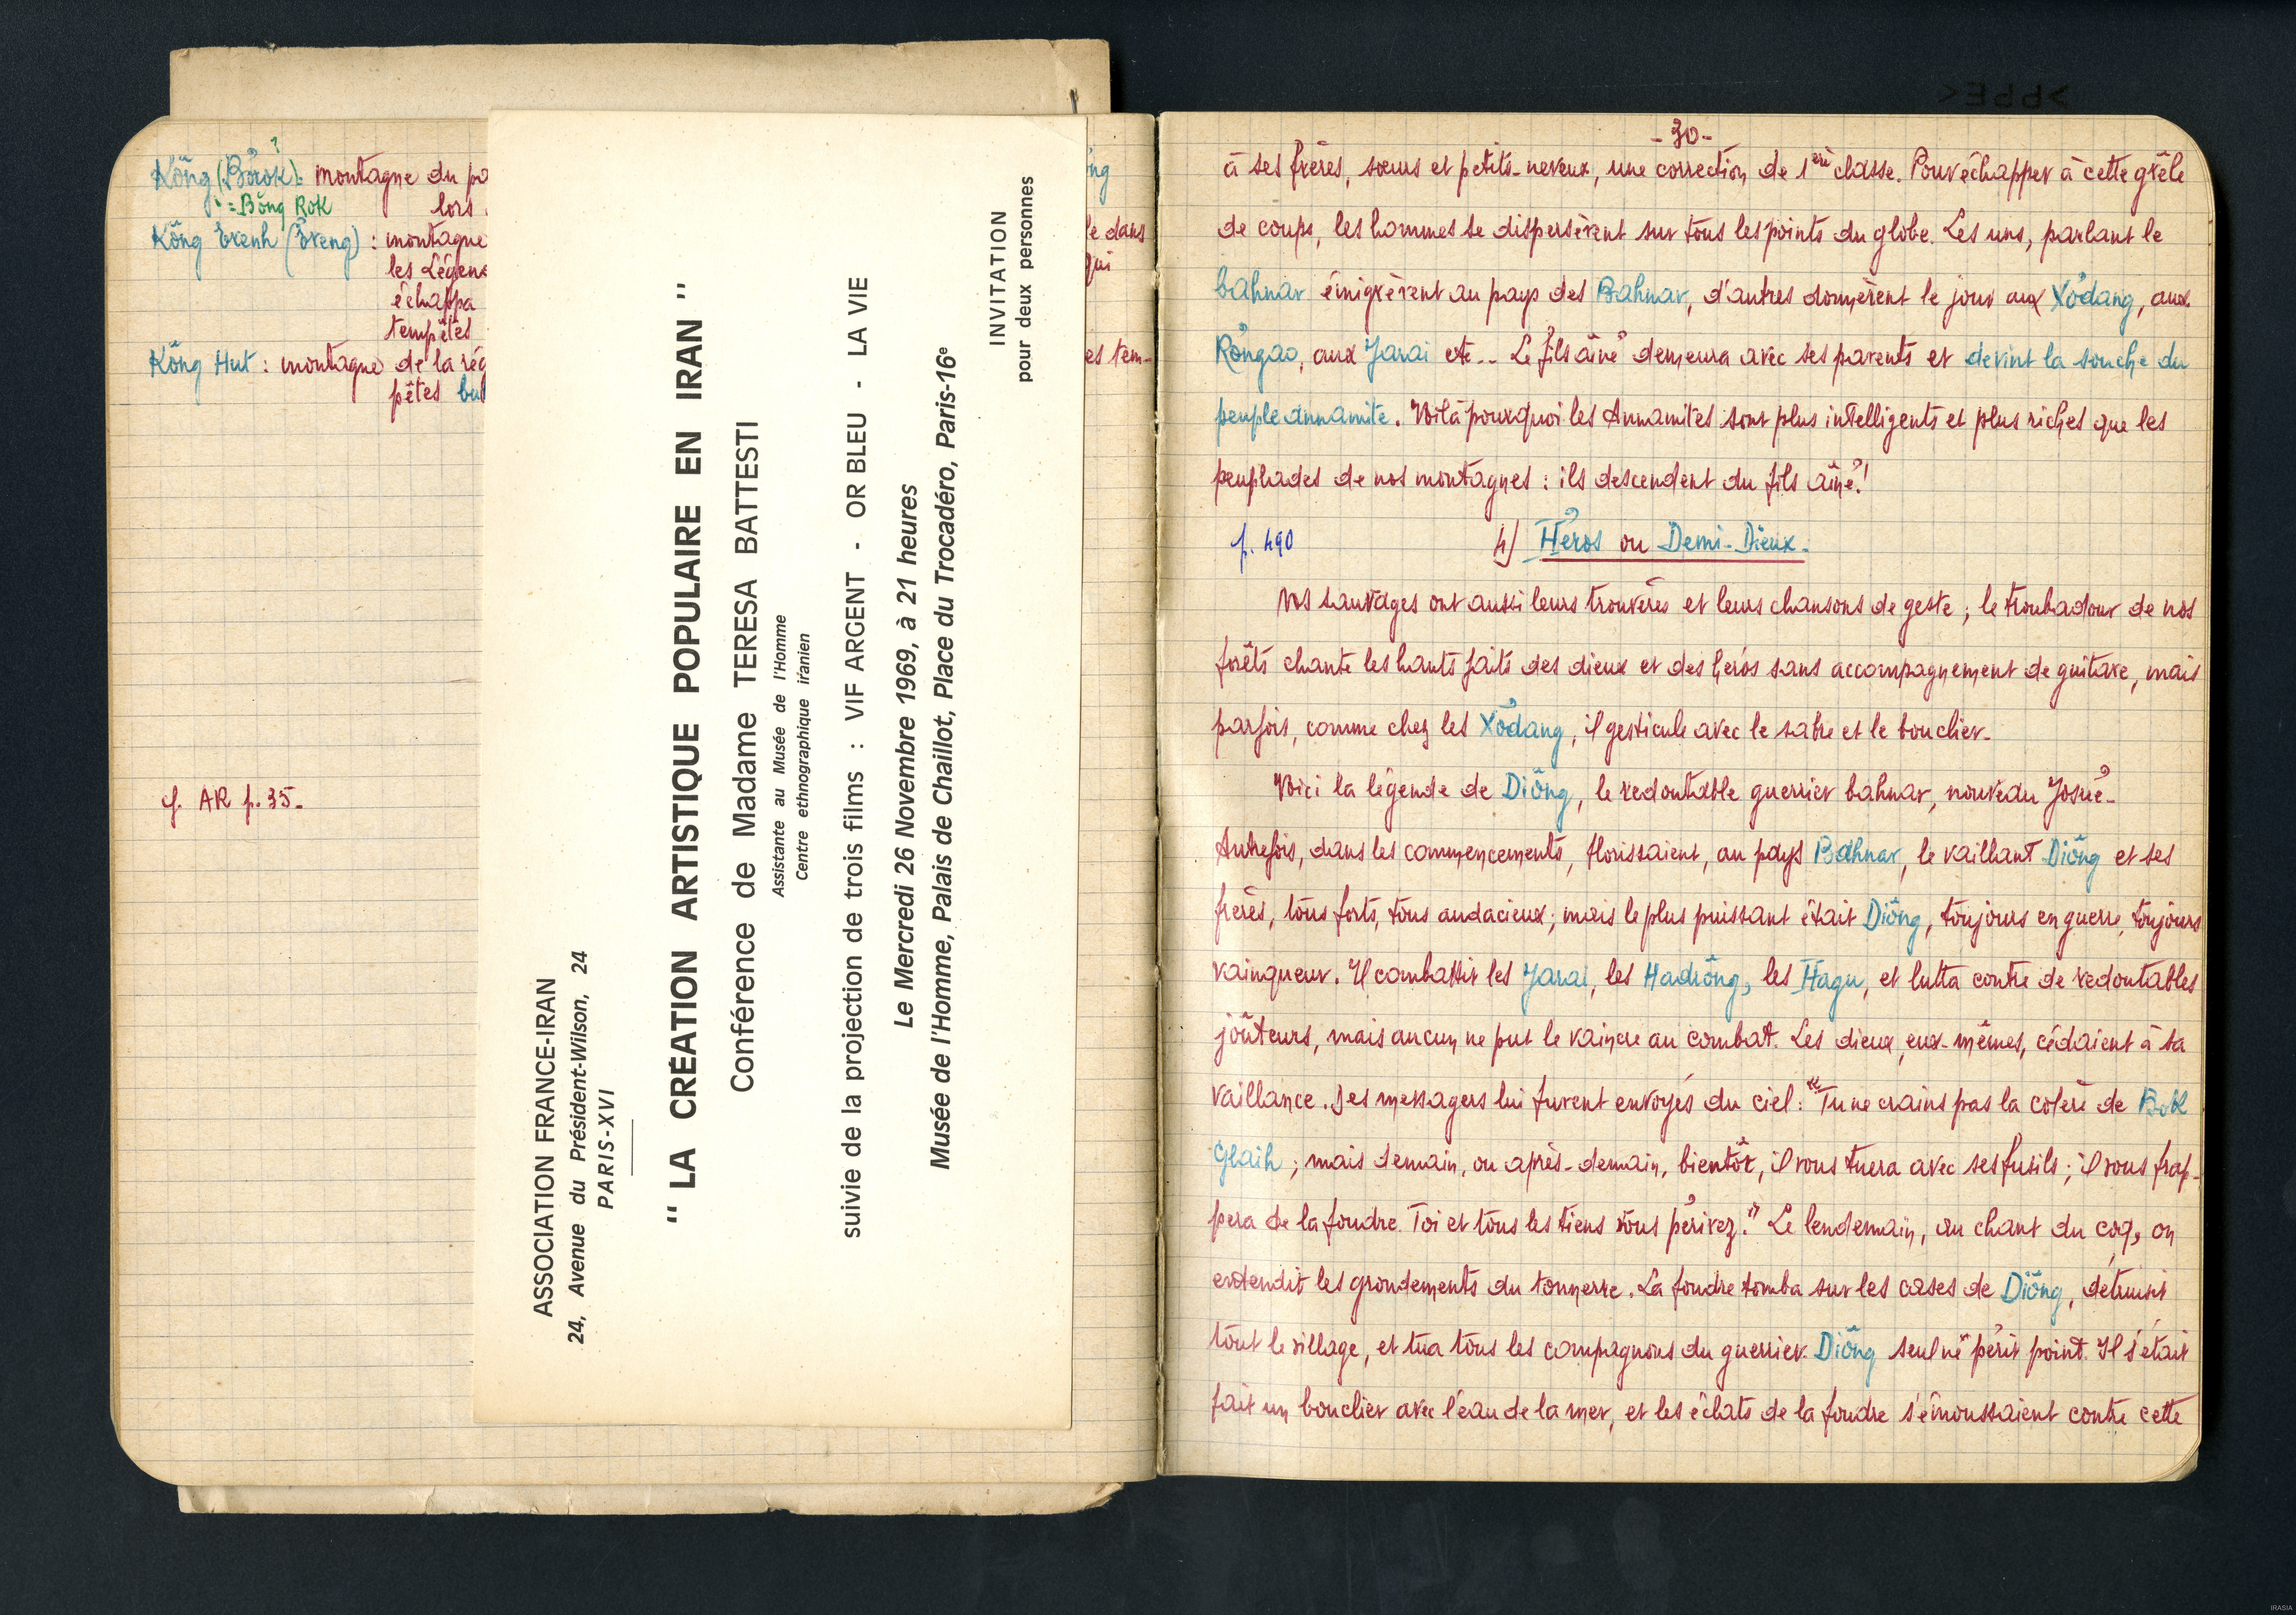 Kông (Bơrok) : montagne du pa
?
= Bông Rok
lors
Kông Ʈrenh (Ʈreng) : montagne
les Légen
échappa
tempêtes
Kông Hut : montagne de la rég
pêtes bu
cf. AR p. 35.
ng
e dans
qui
es tem-
ASSOCIATION FRANCE-IRAN
24, Avenue du Président-Wilson, 24
PARIS-XVI
" LA CRÉATION ARTISTIQUE POPULAIRE EN IRAN "
Conférence de Madame TERESA BATTESTI
Assistante au Musée de l'Homme
Centre ethnographique iranien
suivie de la projection de trois films : VIF ARGENT - OR BLEU - LA VIE
Le Mercredi 26 Novembre 1969, à 21 heures
Musée de l'Homme, Palais de Chaillot, Place du Trocadéro, Paris-16e
INVITATION
pour deux personnes
- 30 -
à ses frères, sœurs et petits-neveux, une correction de 1ère classe. Pour échapper à cette grêle
de coups, les hommes se dispersèrent sur tous les points du globe. Les uns, parlant le
bahnar émigrèrent au pays des Bahnar, d'autres donnèrent le jour aux Xơđang, aux
Rơngao, aux Jarai etc... Le fils aîné demeura avec ses parents et devint la souche du
peuple annamite. Voilà pourquoi les Annamites sont plus intelligents et plus riches que les
peuplades de nos montagnes : ils descendent du fils aîné !
p. 490
4) Héros ou Demi-Dieux.
Nos sauvages ont aussi leurs trouvères et leurs chansons de geste ; le troubadour de nos
forêts chante les hauts faits des dieux et des héros sans accompagnement de guitare, mais
parfois, comme chez les Xơđang, il gesticule avec le sabre et le bouclier.
Voici la légende de Diông, le redoutable guerrier bahnar, nouveau Josué.
Autrefois, dans les commencements, florissaient, au pays Bahnar, le vaillant Diông et ses
frères, tous forts, tous audacieux ; mais le plus puissant était Diông, toujours en guerre, toujours
vainqueur. Il combattit les Jarai, les Hadrông, les Hagu, et lutta contre de redoutables
joûteurs, mais aucun ne put le vaincre au combat. Les dieux, eux-mêmes, cédaient à sa
vaillance. Des messagers lui furent envoyés du ciel : "Tu ne crains pas la colère de Bok
Glaih ; mais demain, ou après-demain, bientôt, il vous tuera avec ses fusils ; il vous frap-
pera de la foudre. Toi et tous les tiens vous périrez." Le lendemain, au chant du coq, on
entendit les grondements du tonnerre. La foudre tomba sur les cases de Diông, détruisit
tout le village, et tua tous les compagnons du guerrier. Diông seul ne périt point. Il s'était
fait un bouclier avec l'eau de la mer, et les éclats de la foudre s'émoussaient contre cette
IRASIA